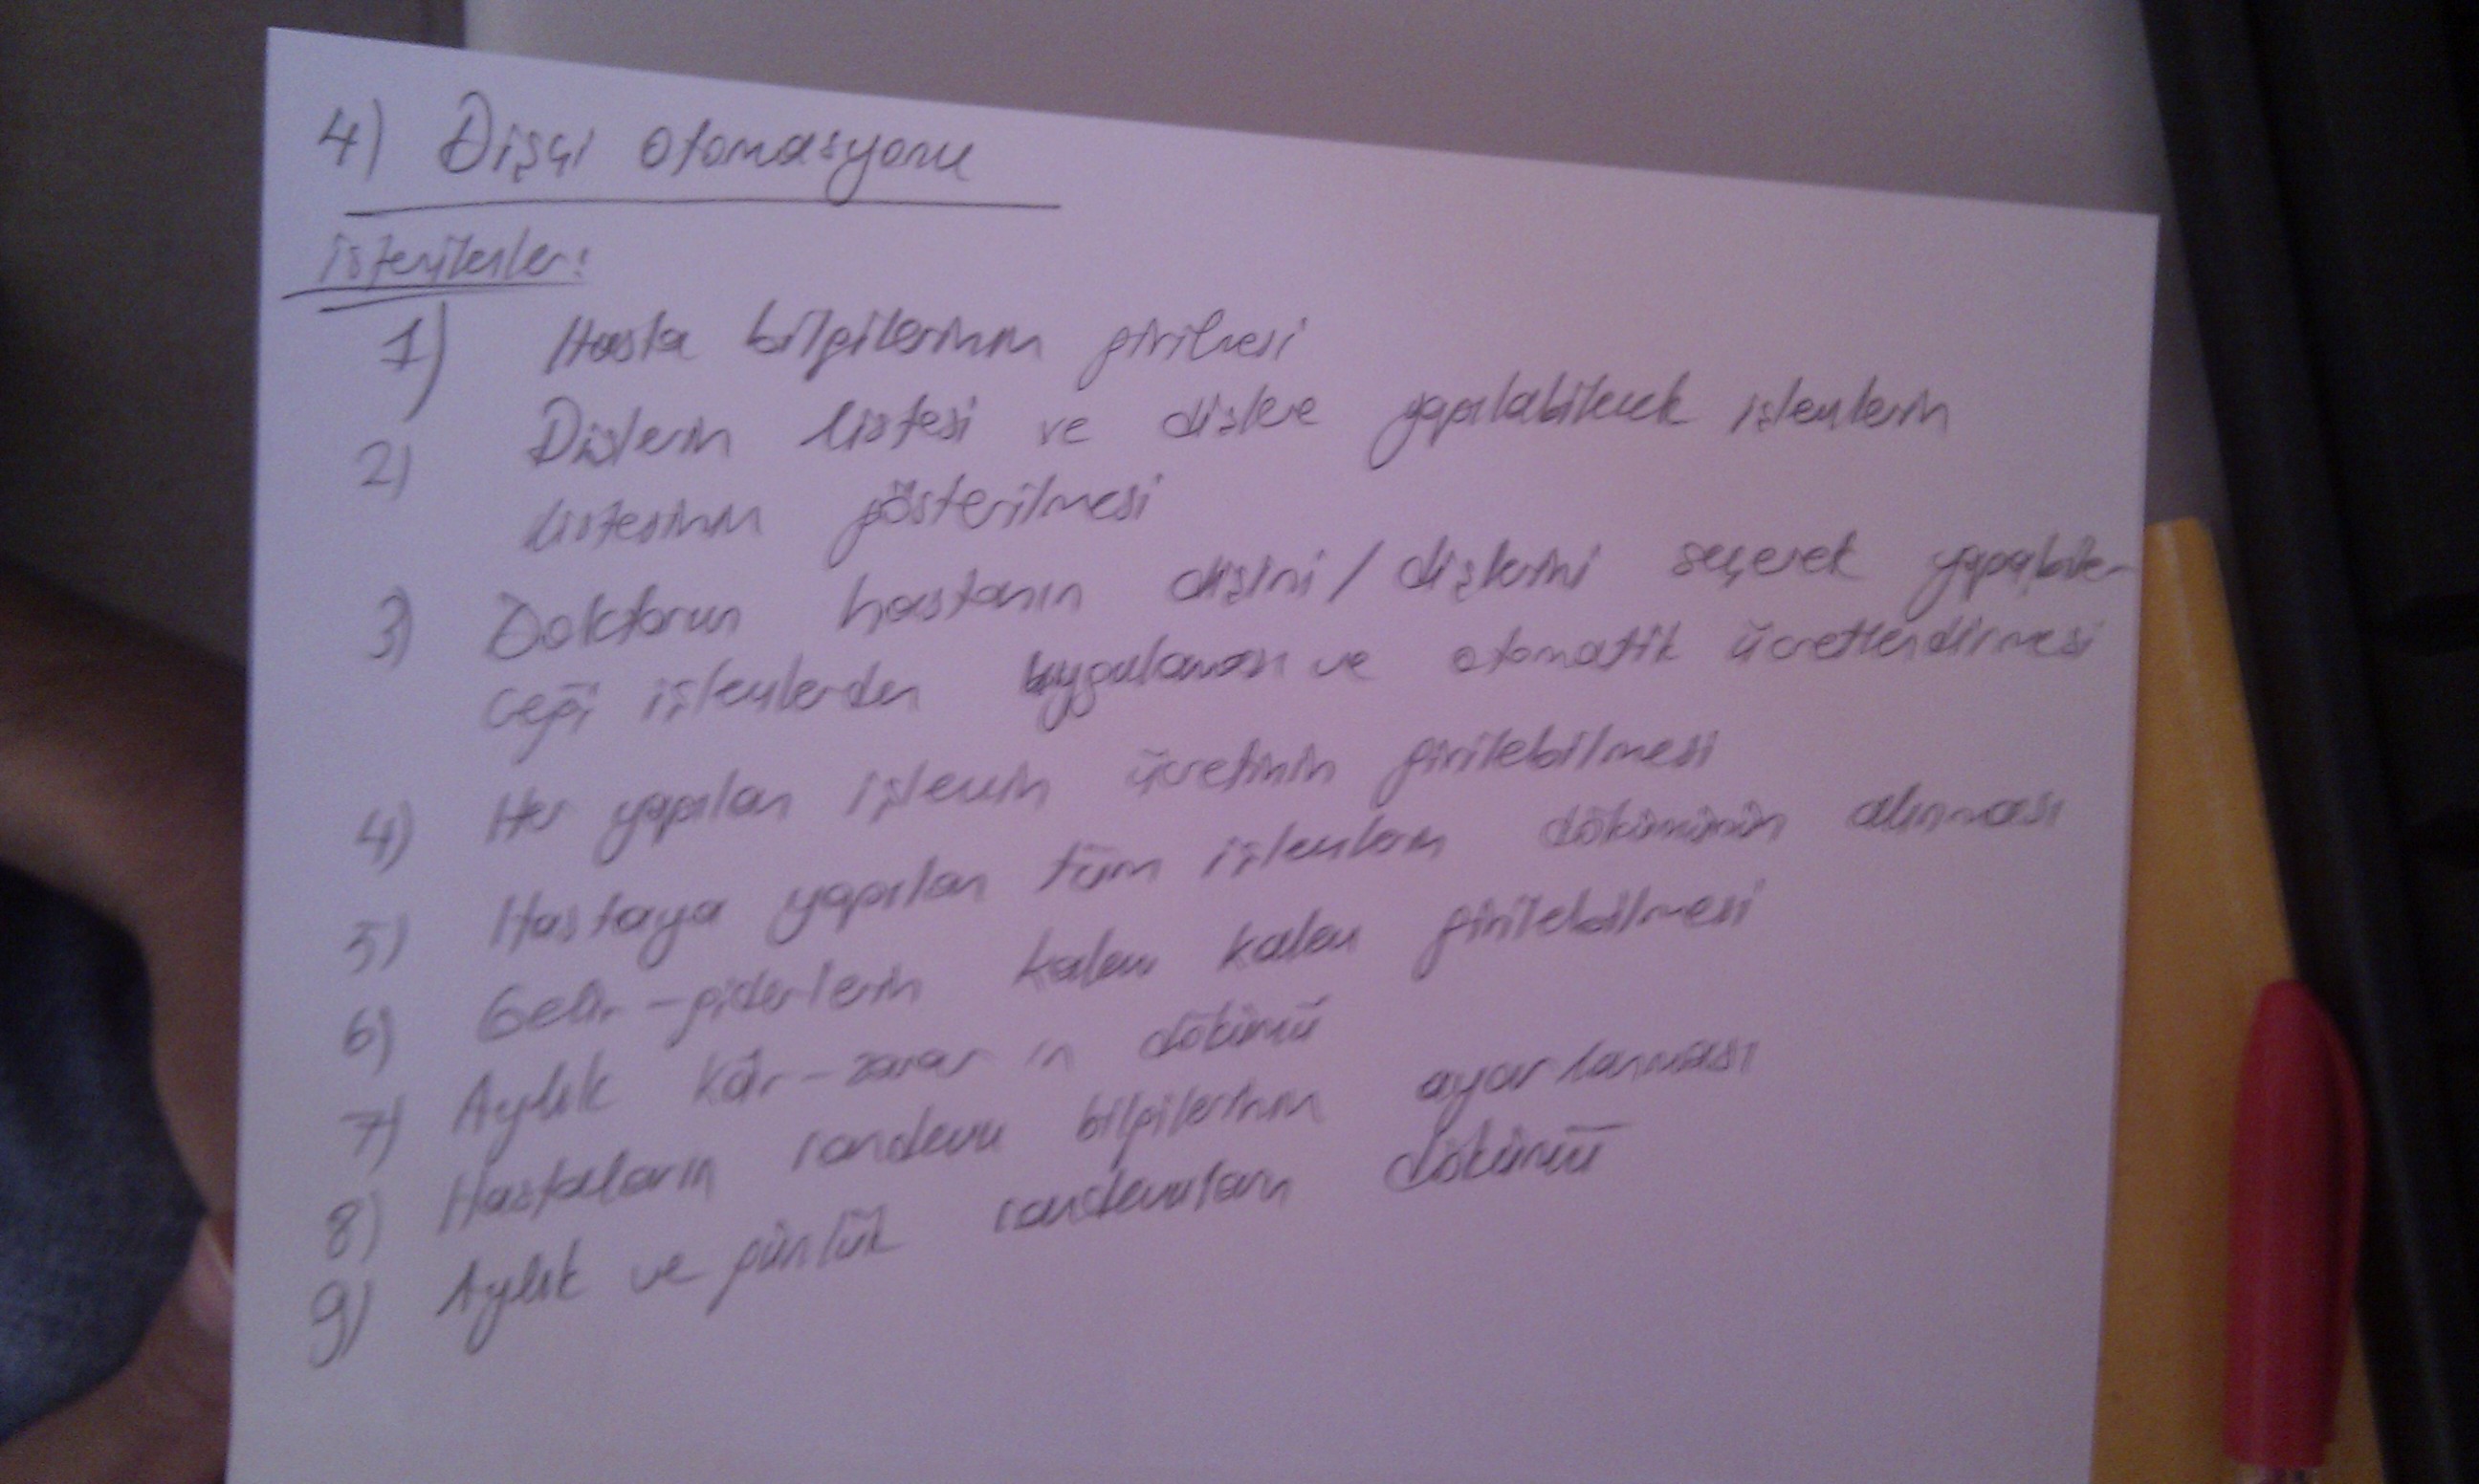 4) Dişçi otomasyonu
istenilenler:
1) Hasta bilgilerinin girilmesi
2) Dişlerin listesi ve dişlere yapılabilecek işlemlerin
listesinin gösterilmesi
3) Doktorun hastanın dişini / dişlerini seçerek yapabile-
ceği işlemlerden uygulaması ve otomatik ücretlendirmesi
4) Her yapılan işlemin ücretinin girilebilmesi
5) Hastaya yapılan tüm işlemlerin dökümünün alınması
6) Gelir-giderlerin kalem kalem girilebilmesi
7) Aylık kâr-zarar ın dökümü
8) Hastaların randevu bilgilerinin ayarlanması
9) Aylık ve günlük randevuların dökümü